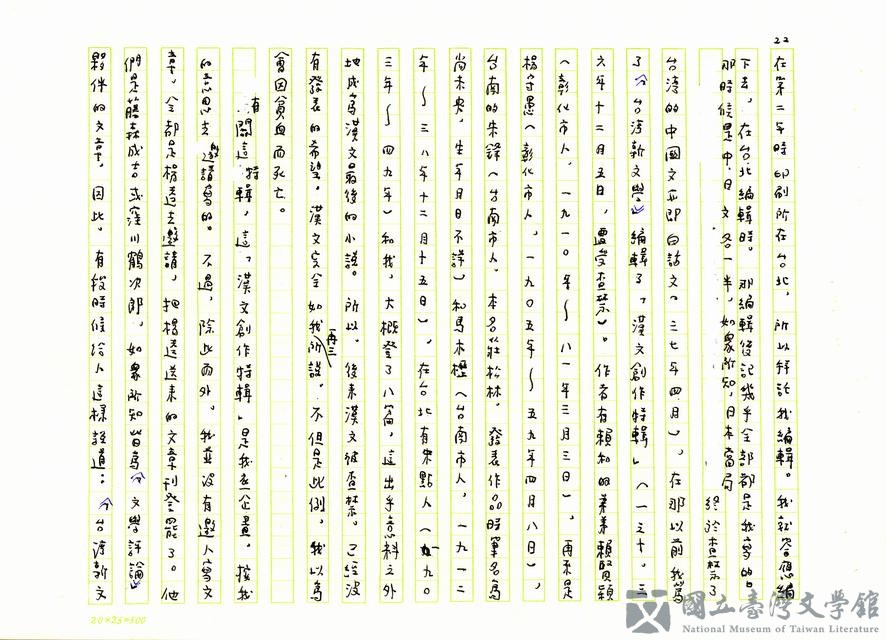 22
在第二年時印刷所在台北，所以拜託我編輯。我就答應編
下去，在台北編輯時。那編輯後記幾乎全部都是我寫的。
那時候是中，日文各一半，如衆所知，日本當局終於查禁了
台湾的中國文亦即白話文（三七年四月），在那以前我爲
了《台湾新文學》編輯了「漢文創作特輯」（一之十，三
六年十二月五日，遭受查禁）。作者有賴和的弟弟賴賢穎
（彰化市人，一九一〇年～八一年三月三日），再來是
楊守愚（彰化市人，一九〇五年～五九年四月八日），
台南的朱鋒（台南市人。本名莊松林，發表作品時筆名爲
尚未央，生年月日不詳）和馬木櫪（台南市人，一九一二
年～三八年十二月十五日），在台北有朱點人（一九〇
三年～四九年）和我，大概登了八篇，這出乎意料之外
地成爲漢文最後的小說。所以，後來漢文被查禁。已經沒
有發表的希望，漢文完全如我再三所說，不但是此例，我以爲
會因貧血而死亡。
有關這特輯，這「漢文創作特輯」是我在企畫，按我
的意思去邀請寫的。不過，除此而外，我並沒有邀人寫文
章，全部是楊逵去邀請，把楊逵送來的文章刊登罷了。他
們是藤森成吉或窪川鶴次郎，如衆所知皆爲《文學評論》
夥伴的文章，因此。有段時候給人這樣說道：《台湾新文
20×25=500
國立臺灣文學館
National Museum of Taiwan Literature